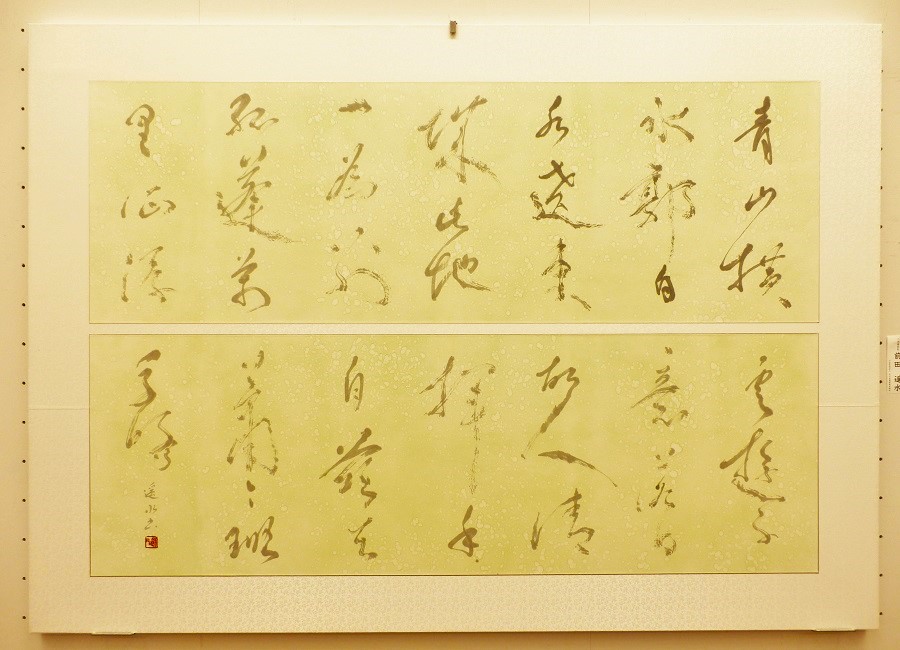 青山横
北郭白
水遶東
城此地
一為別
孤蓬萬
里征浮
雲遊子
意落日
故人情
揮手
自茲去
蕭々班
馬鳴
遥水書
前田 遥水